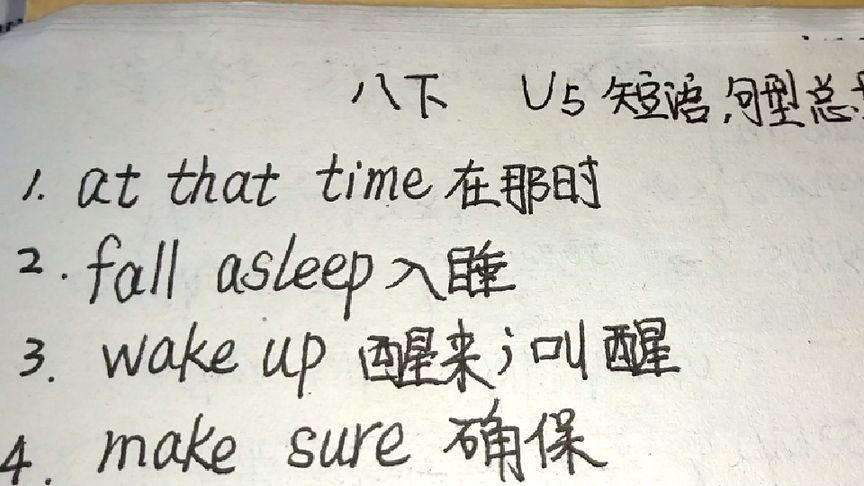 八下 U5 短语,句型总
1. at that time 在那时
2. fall asleep 入睡
3. wake up 醒来;叫醒
4. make sure 确保